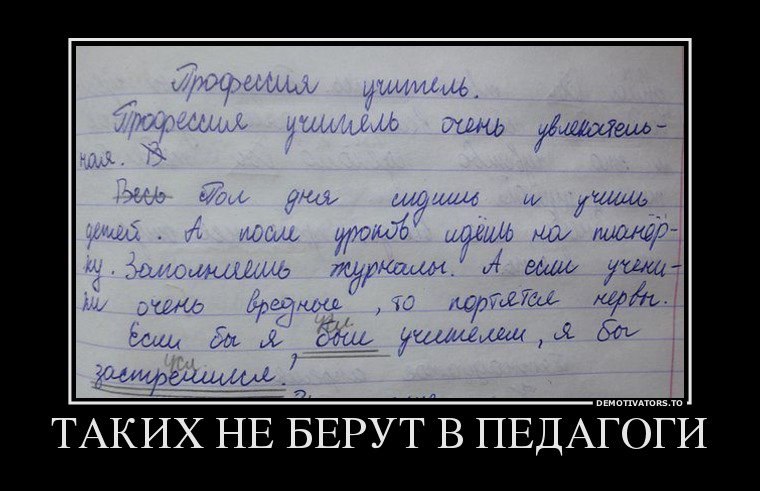 Профессия учитель.
Профессия учитель очень увлекатель-
ная. В
Весь Пол дня сидишь и учишь
детей. А после уроков идёшь на планёр-
ку. Заполняешь журналы. А если учени-
ки очень вредные, то портятся нервы.
Если бы я был учителем, я бы
застрелился.
DEMOTIVATORS.TO
ТАКИХ НЕ БЕРУТ В ПЕДАГОГИ